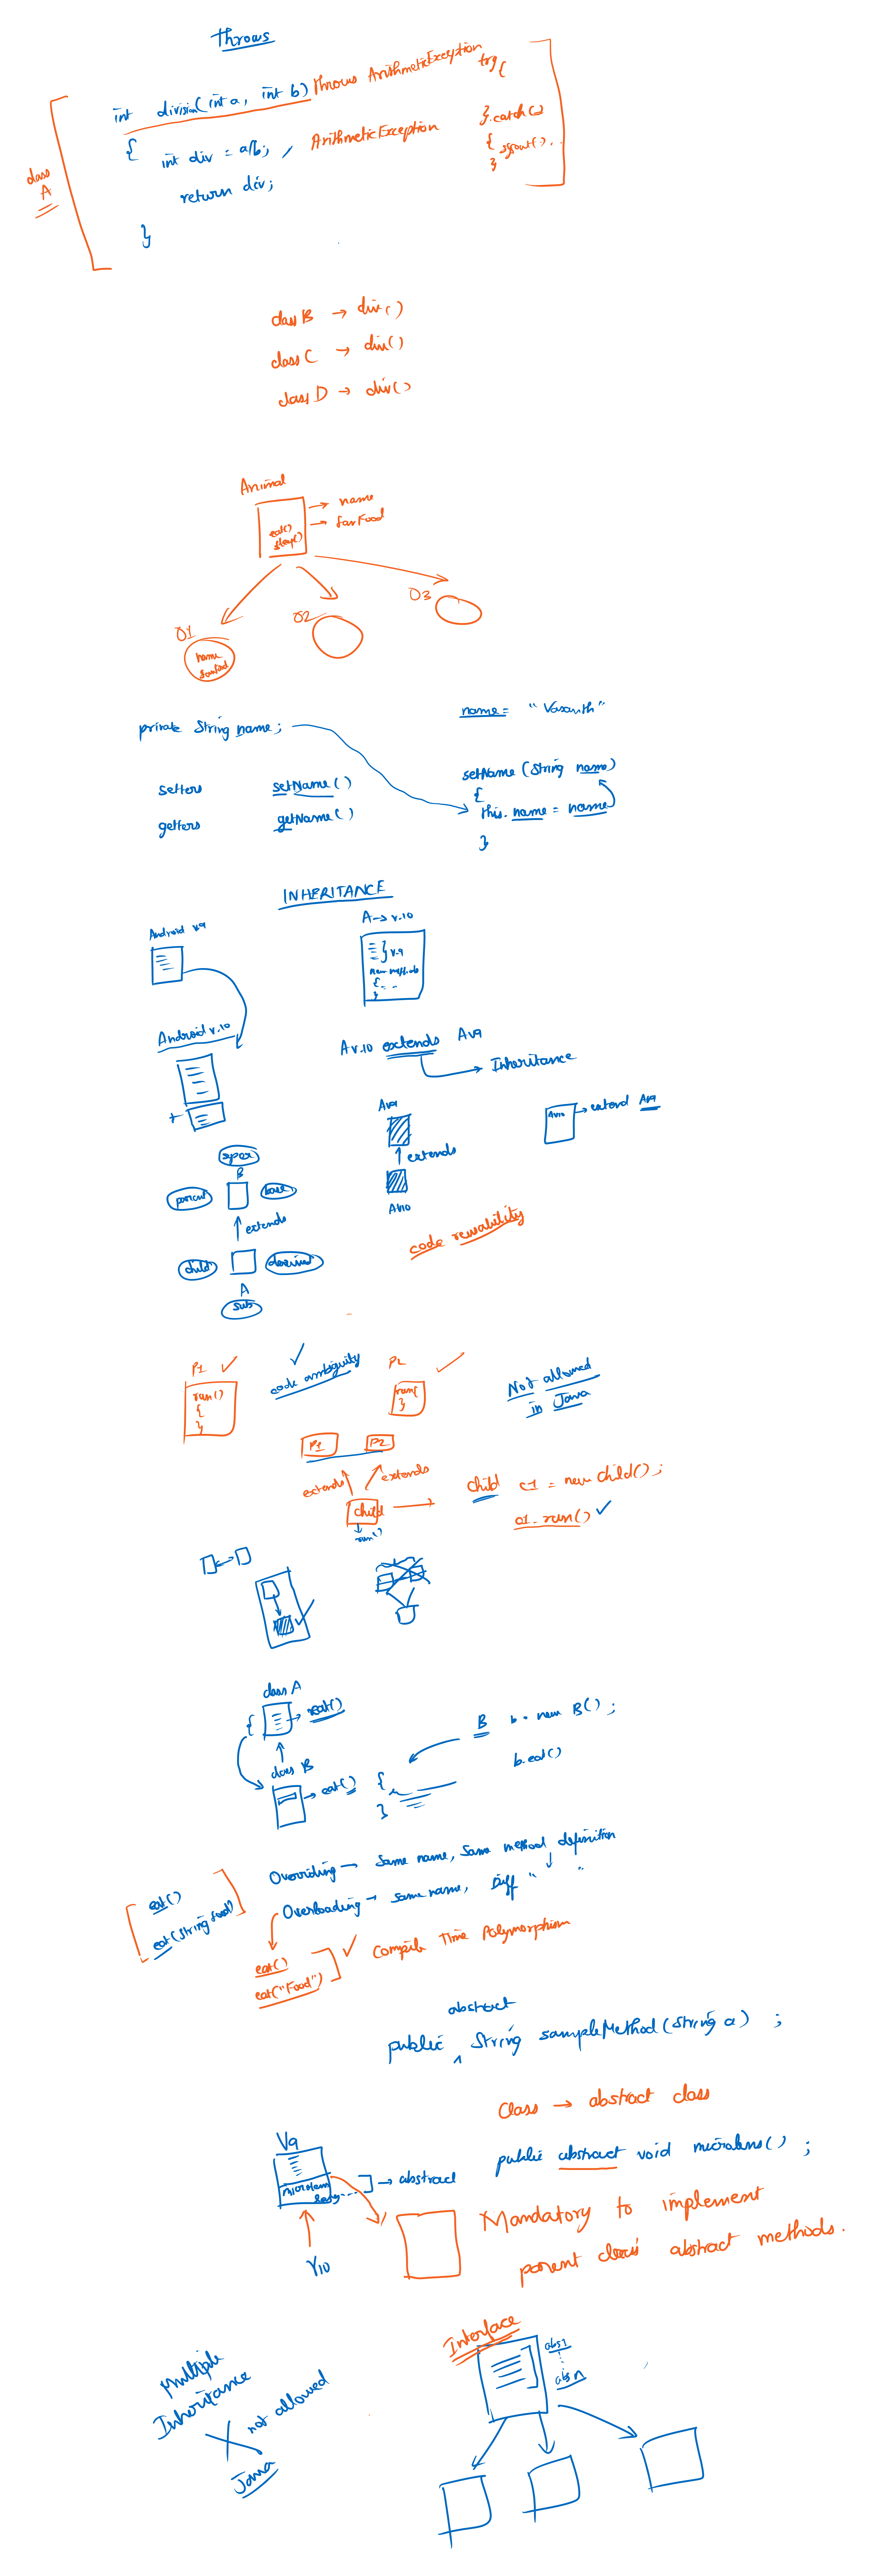 Throws
int division(int a, int b) throws ArithmeticException
try{
{
int div = a/b; , ArithmeticException
}.catch()
{ sysout()...
}
class
A
return div;
}
class B → div()
class C → div()
class D → div()
Animal
→ name
→ favFood
eat()
sleep()
O1
O2
O3
name
favFood
name = "Vasanth"
private String name;
setters setName()
getters getName()
setName (String name)
{
this.name = name
}
INHERITANCE
Android v9
A → v.10
} v.9
new methods
{ - - -
}
Android v.10
A v.10 extends Av9
→ Inheritance
+
Av9
↑ extends
Av10
Av10 → extend Av9
super
B
parent
base
↑ extends
child
derived
A
sub
code reusability
P1 ✓
✓
code ambiguity
P2 ✓
run()
{
}
run()
}
Not allowed
in Java
P1 P2
extends extends
child
run()
child c1 = new child();
c1.run() ✓
class A
{ → eat()
↑
class B
→ eat() {
}
B b = new B();
b.eat()
Overriding → Same name, Same method definition
Overloading → same name, Diff " "
eat()
eat(String food)
eat()
eat("Food")
✓ Compile Time Polymorphism
abstract
public ^ String sampleMethod(String a) ;
Class → abstract class
public abstract void microlens() ;
V9
microlens
→ abstract
V10
Mandatory to implement
parent class abstract methods.
Interface
abs1
abs n
Multiple
Inheritance
not allowed
Java